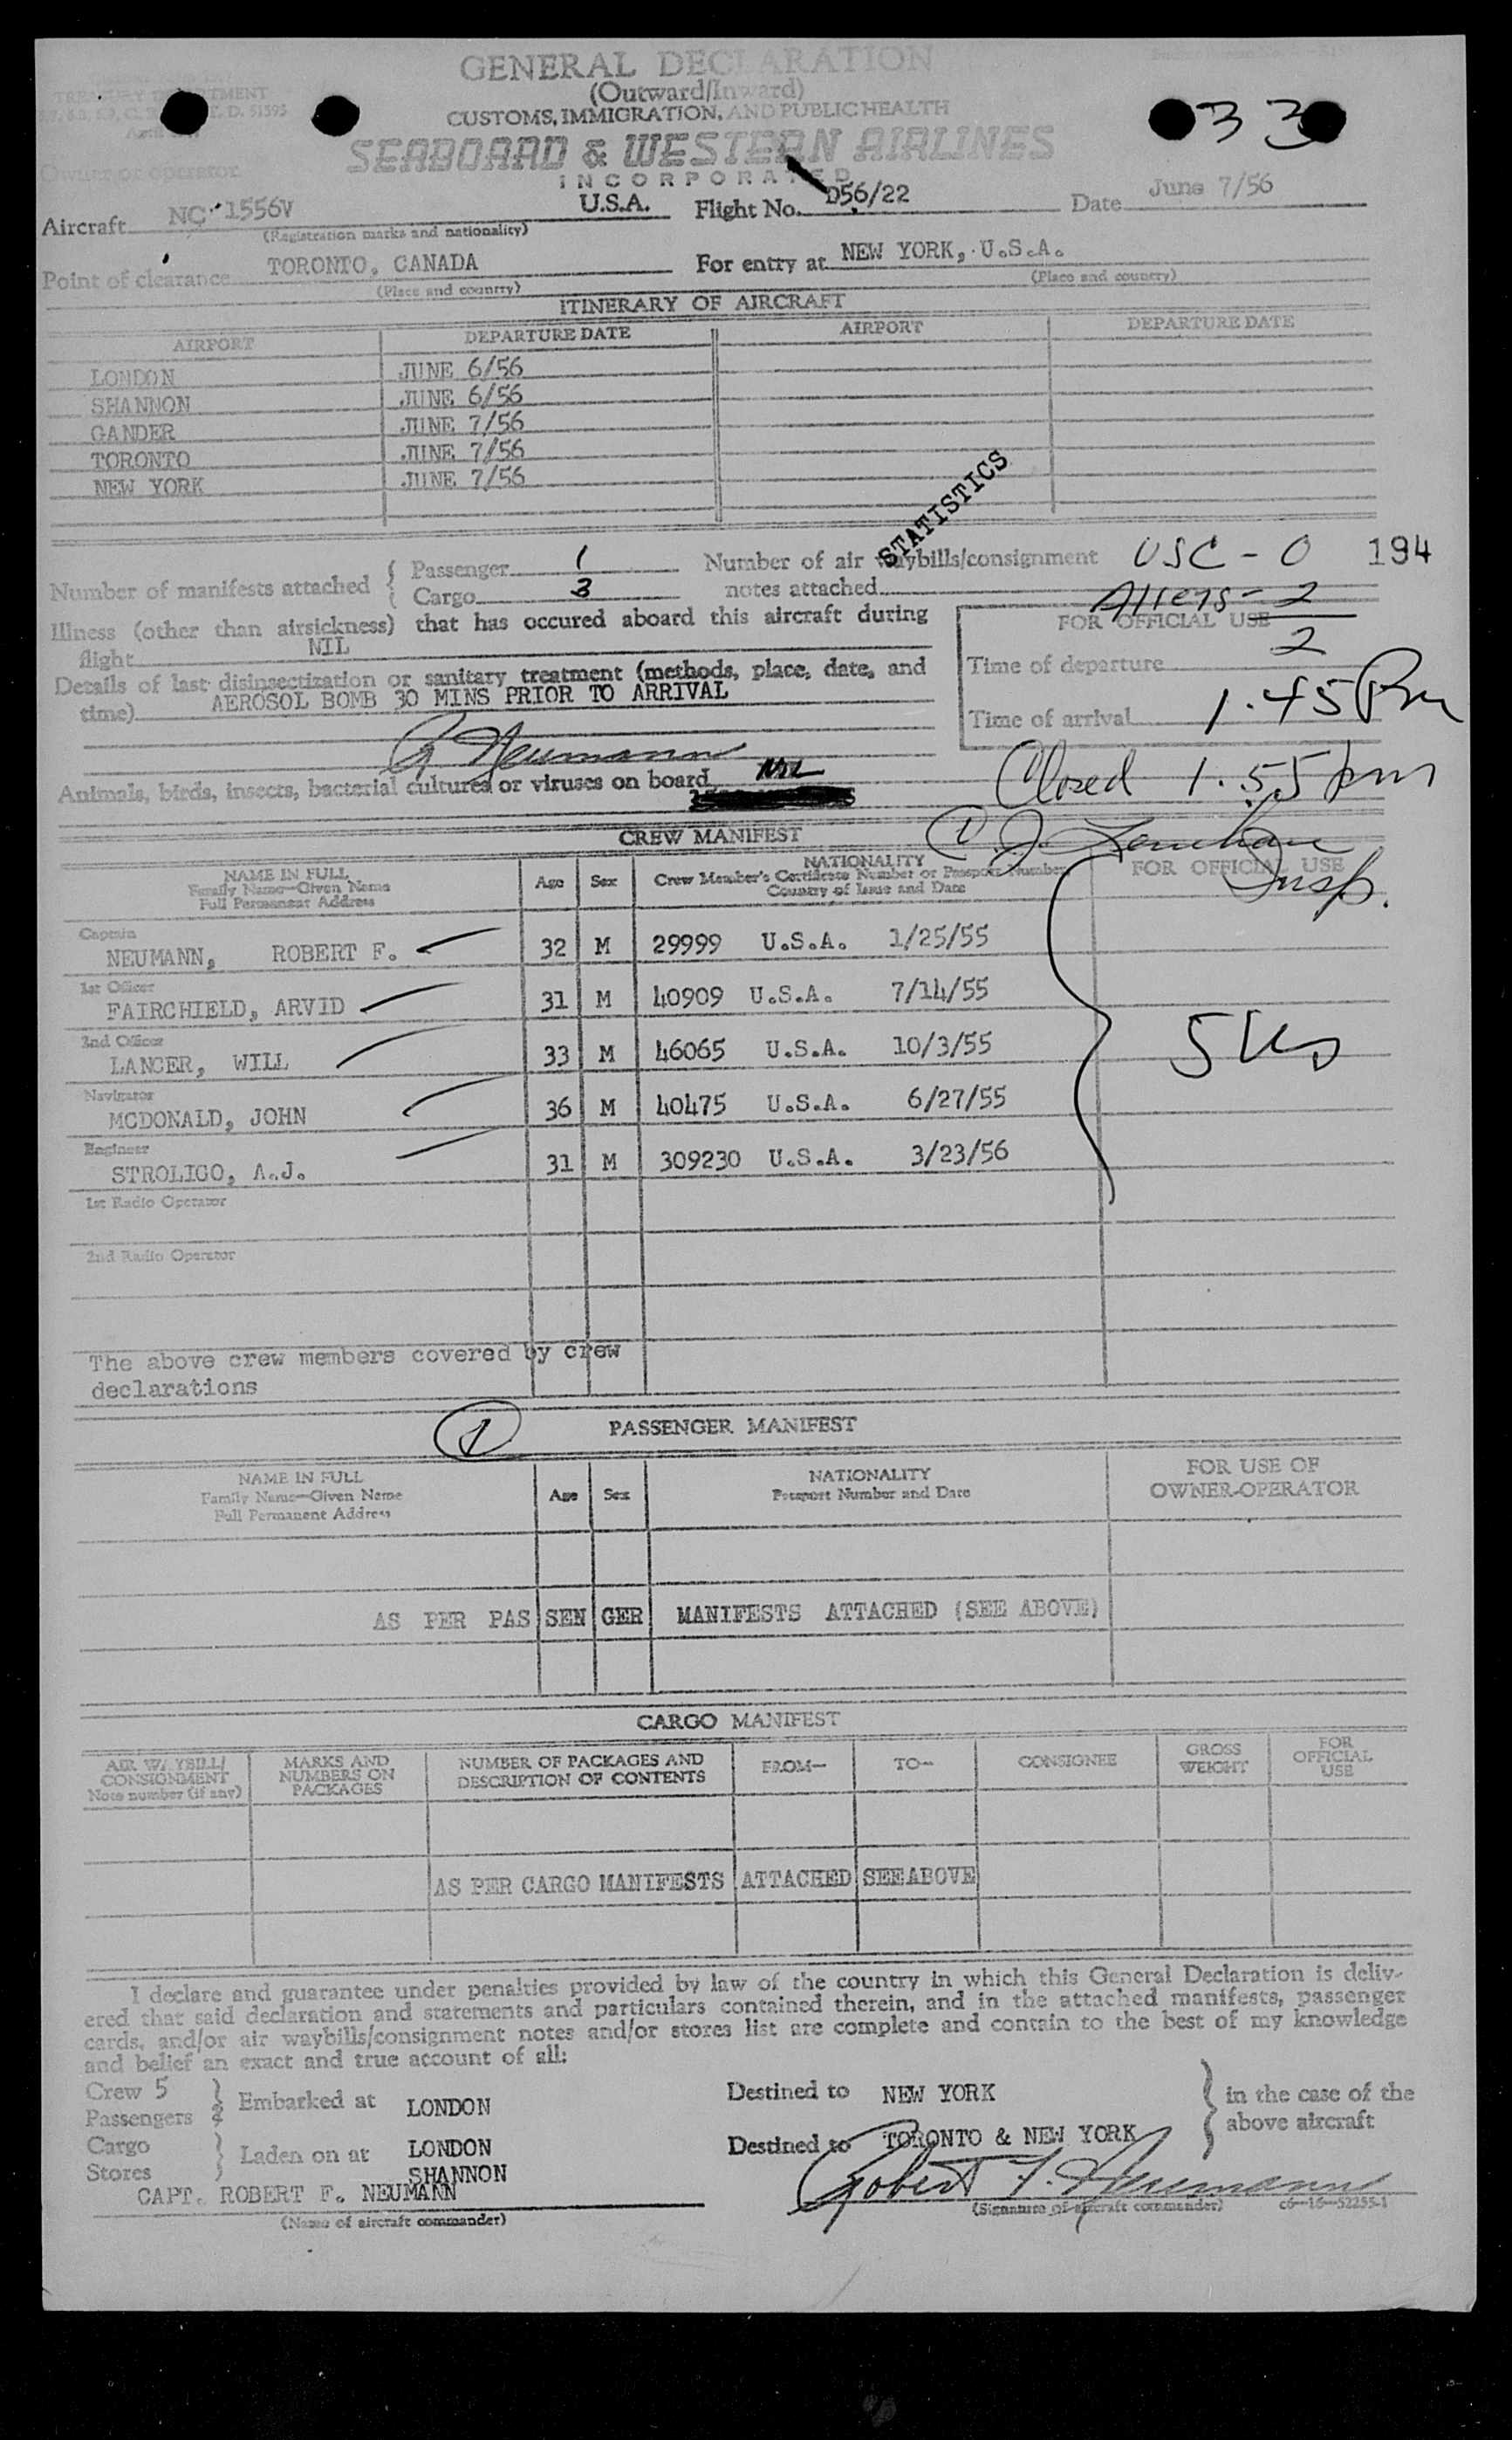 GENERAL DECLARATION
(Outward/Inward)
TREASURY DEPARTMENT
CUSTOMS, IMMIGRATION, AND PUBLIC HEALTH
T. D. 51595
33
SEABOARD & WESTERN AIRLINES
INCORPORATED
Owner or operator
Aircraft NC 1556V U.S.A. Flight No. D56/22 Date June 7/56
(Registration marks and nationality)
Point of clearance TORONTO, CANADA For entry at NEW YORK, U.S.A.
(Place and country) (Place and country)
ITINERARY OF AIRCRAFT
AIRPORT DEPARTURE DATE AIRPORT DEPARTURE DATE
LONDON JUNE 6/56
SHANNON JUNE 6/56
GANDER JUNE 7/56
TORONTO JUNE 7/56
NEW YORK JUNE 7/56
STATISTICS
Number of manifests attached { Passenger 1 Number of air waybills/consignment USC - 0 194
Cargo 3 notes attached Aliens - 2
Illness (other than airsickness) that has occured aboard this aircraft during FOR OFFICIAL USE
flight NIL 2
Details of last disinsectization or sanitary treatment (methods, place, date, and Time of departure
time) AEROSOL BOMB 30 MINS PRIOR TO ARRIVAL
Time of arrival 1.45 Pm
R Neumann
Animals, birds, insects, bacterial cultures or viruses on board NIL
Closed 1.55 pm
CREW MANIFEST
(1) J. Insp.
NAME IN FULL Age Sex NATIONALITY FOR OFFICIAL USE
Family Name—Given Name Crew Member's Certificate Number or Passport Number
Full Permanent Address Country of Issue and Date
Captain
NEUMANN, ROBERT F. 32 M 29999 U.S.A. 1/25/55
1st Officer
FAIRCHIELD, ARVID 31 M 40909 U.S.A. 7/14/55
2nd Officer
LANCER, WILL 33 M 46065 U.S.A. 10/3/55
5
Navigator
MCDONALD, JOHN 36 M 40475 U.S.A. 6/27/55
Engineer
STROLIGO, A.J. 31 M 309230 U.S.A. 3/23/56
1st Radio Operator
2nd Radio Operator
The above crew members covered by crew
declarations
(1) PASSENGER MANIFEST
NAME IN FULL Age Sex NATIONALITY FOR USE OF
Family Name—Given Name Passport Number and Date OWNER-OPERATOR
Full Permanent Address
AS PER PAS SEN GER MANIFESTS ATTACHED (SEE ABOVE)
CARGO MANIFEST
AIR WAYBILL/ MARKS AND NUMBER OF PACKAGES AND FROM— TO— CONSIGNEE GROSS FOR
CONSIGNMENT NUMBERS ON DESCRIPTION OF CONTENTS WEIGHT OFFICIAL
Note number (if any) PACKAGES USE
AS PER CARGO MANIFESTS ATTACHED SEE ABOVE
I declare and guarantee under penalties provided by law of the country in which this General Declaration is deliv-
ered that said declaration and statements and particulars contained therein, and in the attached manifests, passenger
cards, and/or air waybills/consignment notes and/or stores list are complete and contain to the best of my knowledge
and belief an exact and true account of all:
Crew 5 } Embarked at LONDON Destined to NEW YORK } in the case of the
Passengers 2 above aircraft
Cargo } Laden on at LONDON Destined to TORONTO & NEW YORK
Stores SHANNON
CAPT. ROBERT F. NEUMANN Robert F. Neumann
(Name of aircraft commander) (Signature of aircraft commander) c6—16—52255-1